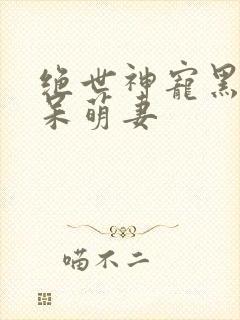 绝世神宠黑
呆萌妻
喵不二